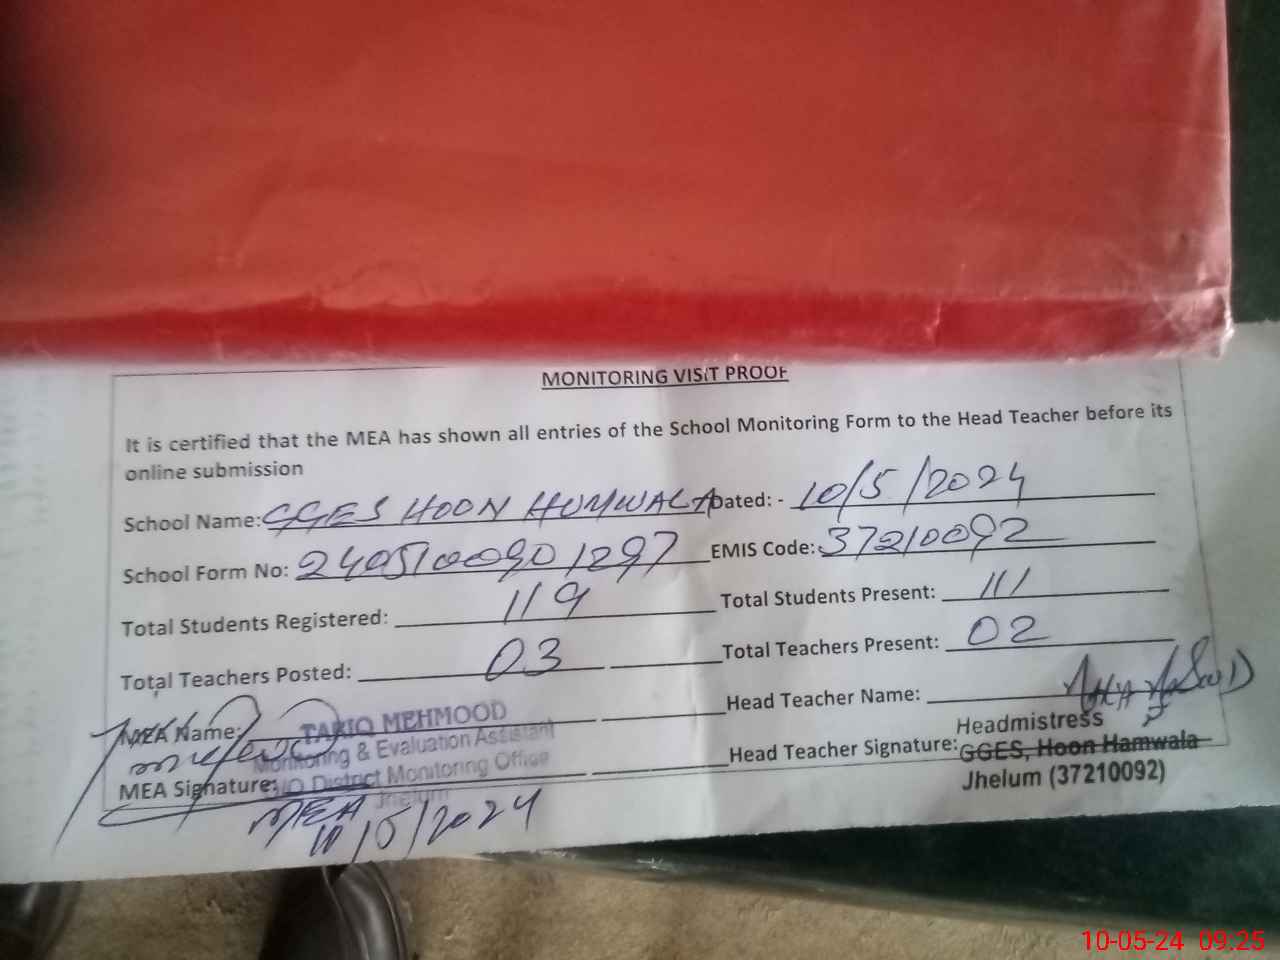 MONITORING VISIT PROOF
It is certified that the MEA has shown all entries of the School Monitoring Form to the Head Teacher before its
online submission
School Name: GGES HOON HUMWALA Dated: - 10/5/2024
School Form No: 2405100901297 EMIS Code: 37210092
Total Students Registered: 119 Total Students Present: 111
Total Teachers Posted: 03 Total Teachers Present: 02
MEA Name: TARIQ MEHMOOD Head Teacher Name:
Monitoring & Evaluation Assistant Headmistress
MEA Signature: O/O District Monitoring Office Head Teacher Signature: GGES, Hoon Hamwala
Jhelum Jhelum (37210092)
MEA
10/5/2024
10-05-24 09:25